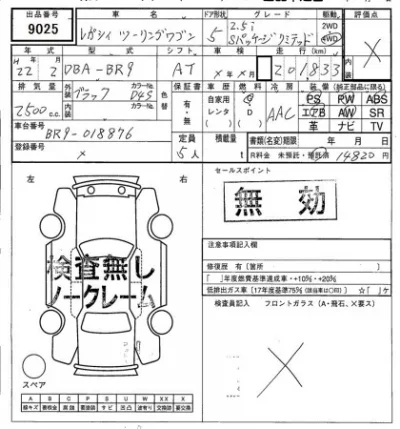 出品番号 車名 ドア形状 グレード 駆動 評価点
9025 レガシィ ツーリングワゴン 5 2.5i Sパッケージリミテッド 2WD 4WD ×
年式 型式 シフト 車検 走行(km) 内装
H 22年 2月 DBA-BR9 AT ×年×月 201833
排気量 外装 ブラック カラーNo. D4S 色替 保証書 車歴 燃料 冷房 装備(純正部品に限る)
2500cc. 内装 カラーNo. 有・無 自家用 レンタ G D AAC PS PW ABS
エアB AW SR
革 ナビ TV
車台番号 BR9-018876 定員 積載量 書類(名変)期限 年 月 日
登録番号 × 5人 t R料金 未預託・預託済 14820円
左 右
セールスポイント
無効
検査無し
ノークレーム
注意事項記入欄
修復歴 有(箇所 )
「 」年度燃費基準達成車・+10%・+20%
低排出ガス車〔17年度基準75%(該当車は〇印)〕 ☆「 」ケ
検査員記入 フロントガラス(A・飛石、×要ス)
×
スペア
A B C P S U W XX X
線キズ 要板金 腐蝕 要塗装 サビ 凹凸 波有り 交換跡 要交換